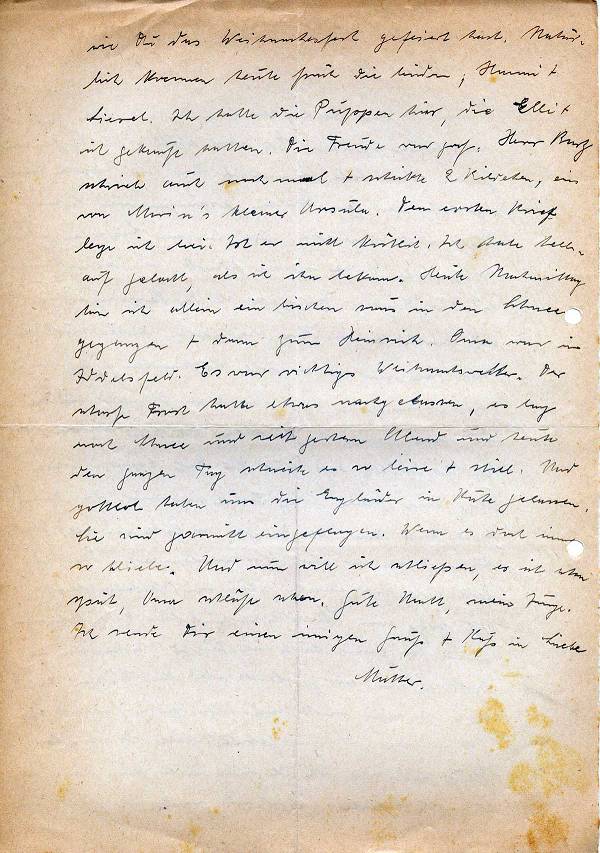 wie Du das Weihnachtsfest gefeiert hast. Natür-
lich kamen heute früh die beiden, Hanni +
Liesel. Ich hatte die Puppen hier, die Elli +
ich gekauft hatten. Die Freude war groß. Herr
schrieb auch noch mal + schickte 2 Bildchen, ein
von kleiner Ursula. Den ersten Brief
lege ich bei. Ist er nicht köstlich. Ich habe hell-
auf gelacht, als ich ihn bekam. Heute Nachmittag
bin ich allein ein bischen raus in den Schnee
gegangen + dann zum Heinrich. Oma war in
Iddelsfeld. Es war richtiges Weihnachtswetter. Der
scharfe Frost hatte etwas nachgelassen, es lag
noch Schnee und seit gestern Abend und heute
den ganzen Tag schneite es so leise + still. Und
gottlob haben uns die Engländer in Ruhe gelassen.
Sie sind garnicht eingeflogen. Wenn es doch immer
so bliebe. Und nun will ich schließen, es ist schon
spät, Oma schläft schon. Gute Nacht, mein Junge.
Ich sende Dir einen innigen Gruß + Kuß in Liebe
Mutter.